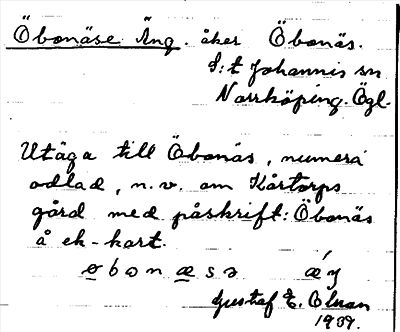 Öbonäse Äng. åker Öbonäs.
S:t Johannis sn
Norrköping. Ögl.
Utäga till Öbonäs, numera
odlad, n.v. om Kårtorps
gård med påskrift: Öbonäs
å ek-kart.
øbonæsə æ´ŋ
Gustaf E. Olsson
1939.